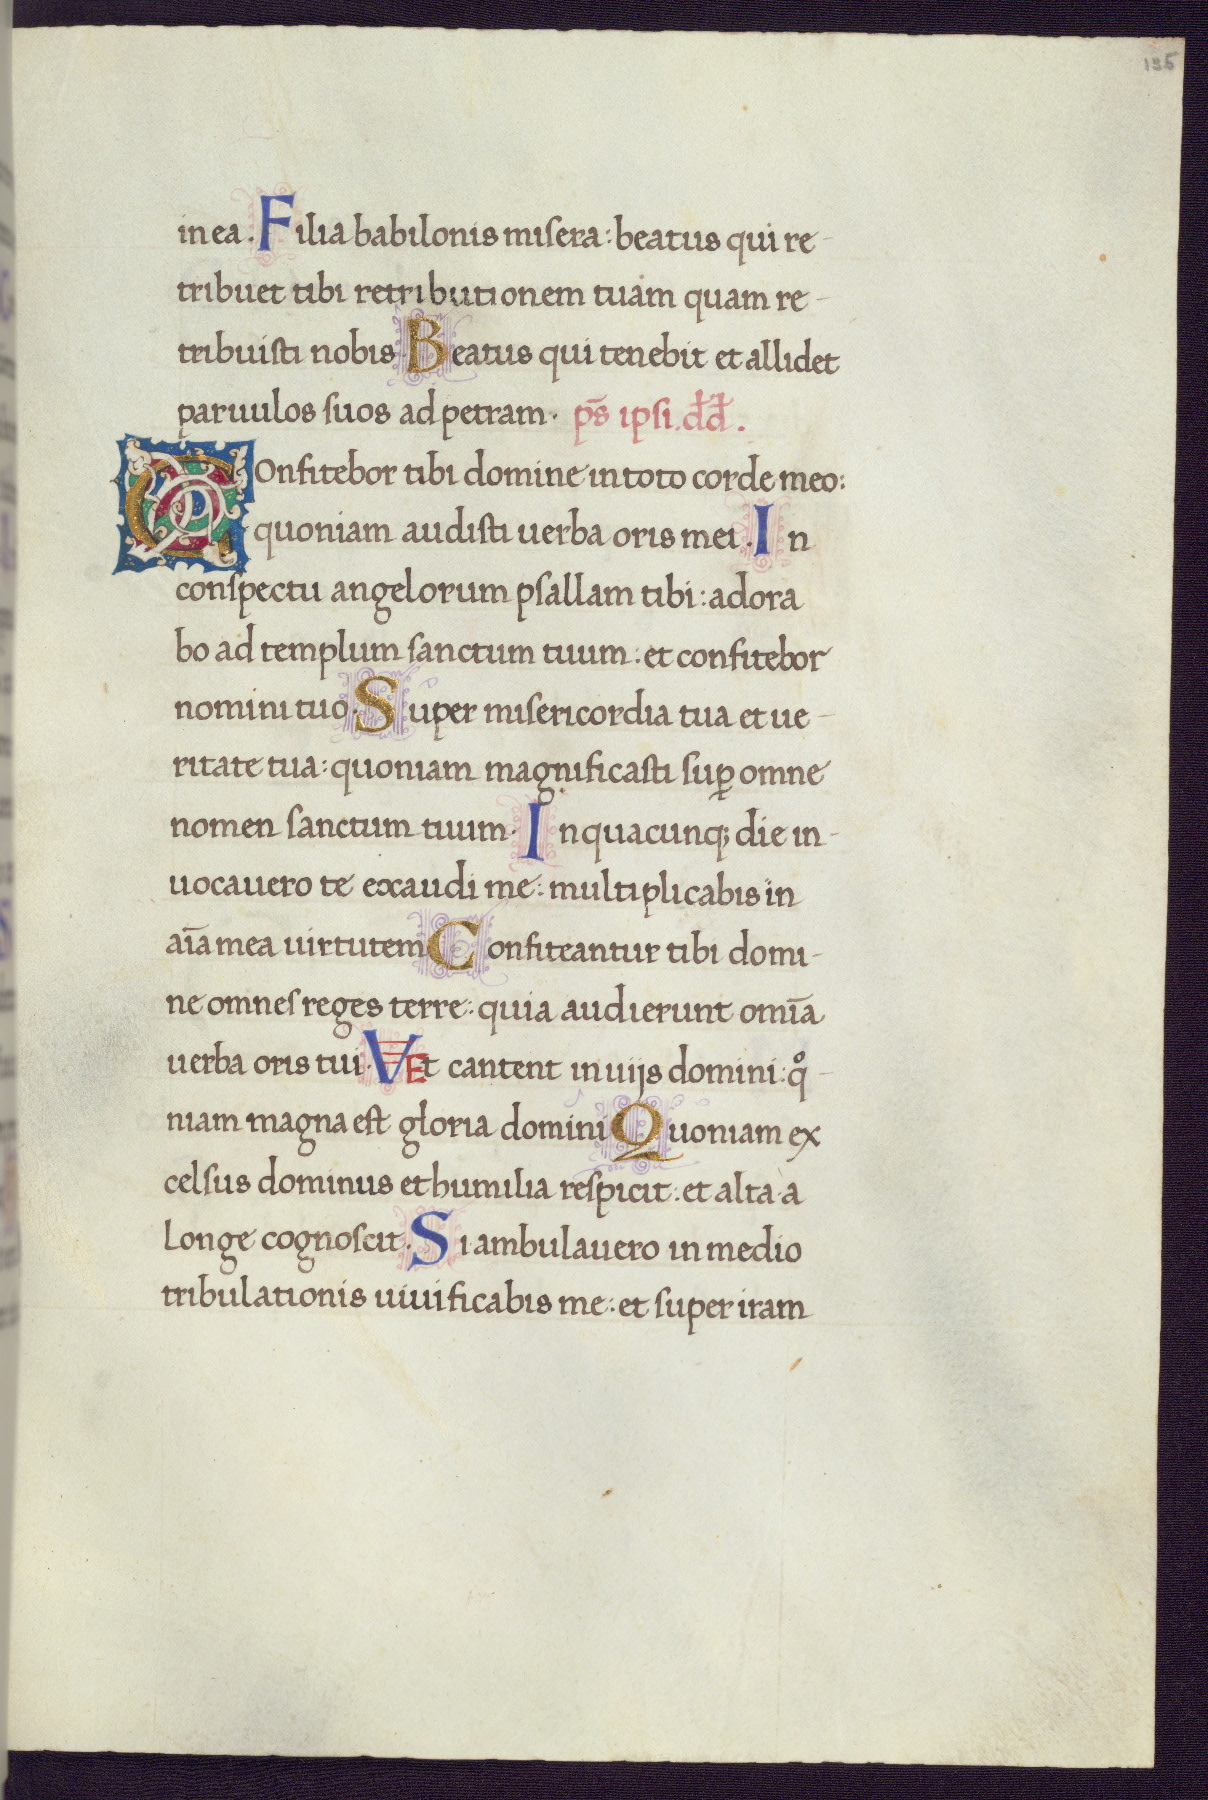 195
in ea. Filia babilonis miſera: beatus qui re-
tribuet tibi retributionem tuam quam re-
tribuiſti nobis. Beatus qui tenebit et allidet
paruulos ſuos ad petram. p̄s ipſi. dđ.
COnfitebor tibi domine in toto corde meo:
quoniam audiſti uerba oris mei. In
conſpectu angelorum pſallam tibi: adora
bo ad templum ſanctum tuum: et confitebor
nomini tuo. Super miſericordia tua et ue-
ritate tua: quoniam magnificaſti ſuꝑ omne
nomen ſanctum tuum. In quacunqꝫ die in-
uocauero te exaudi me: multiplicabis in
aīa mea uirtutem. Confiteantur tibi domi-
ne omneſ reges terre: quia audierunt omīa
uerba oris tui. VEt cantent in uijs domini: qͦ-
niam magna eſt gloria domini. Quoniam ex
celſus dominus et humilia reſpicit: et alta a
longe cognoſcit. Si ambulauero in medio
tribulationis uiuificabis me: et ſuper iram